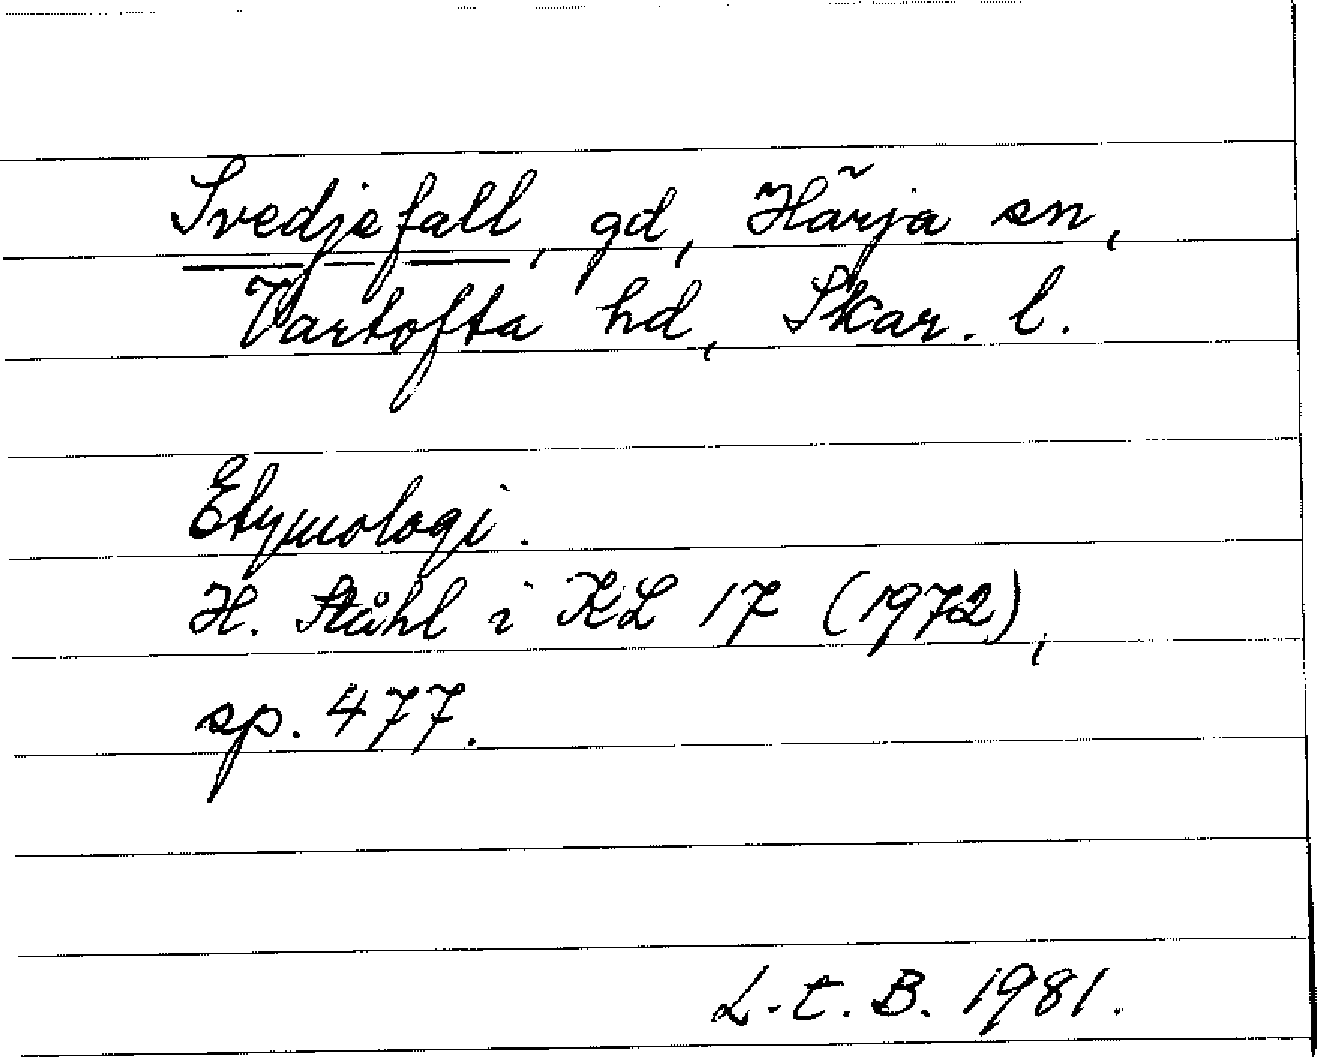 Svedjefall, gd, Härja sn,
Vartofta hd, Skar. l.
Etymologi.
H. Ståhl i KL 17 (1972),
sp. 477.
L.t.B. 1981.